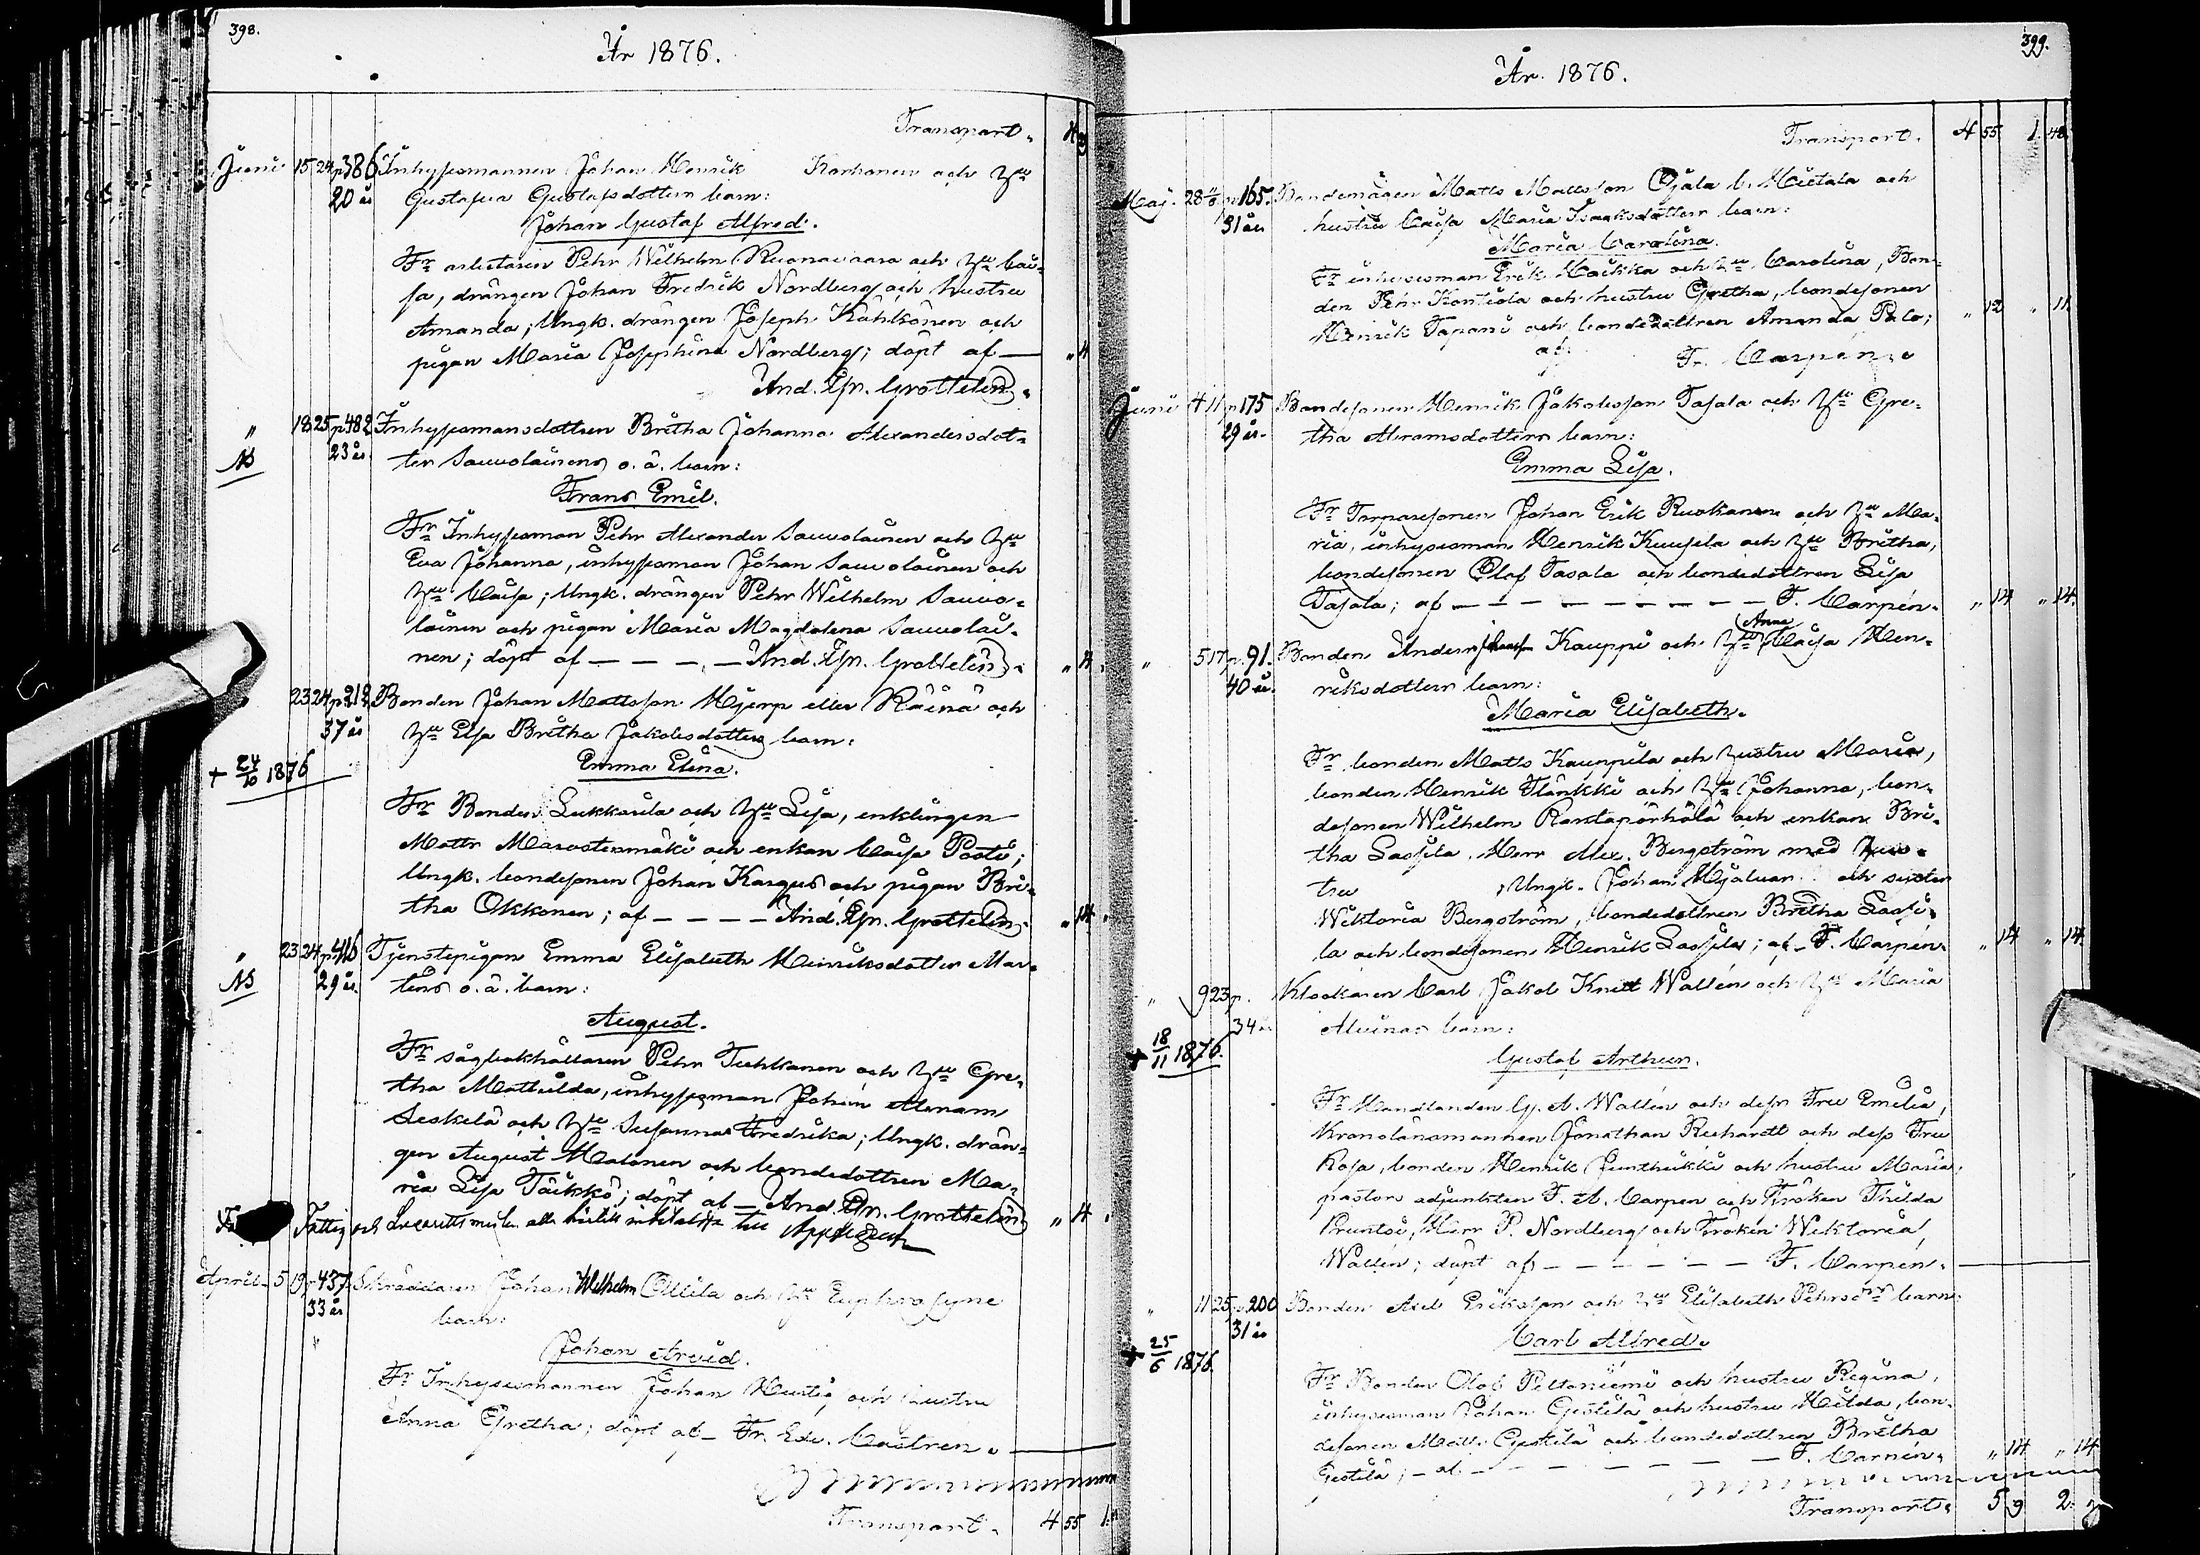 398.
År 1876.
Transport.
Juni 15 24 p 386 Inhysesmannen Johan Henrik Korhonen och Hu
20 år Gustafva Gustafsdotters barn:
Johan Gustaf Alfred.
Fr arbetaren Pehr Wilhelm Ruonavaara och Hu Cai-
sa, drängen Johan Fredrik Nordberg och hustru
Amanda; Ungk. drängen Joseph Kähkönen och
pigan Maria Josephina Nordberg; döpt af — " 4
And. Joh. Grottelin.
" 18 25 p 482 Inhysesmansdottren Britha Johanna Alexandersdot-
NB 23 år ter Sauvolainens o. ä. barn:
Frans Emil.
Fr Inhysesman Pehr Alexander Sauvolainen och Hu
Eva Johanna, inhysesman Johan Sauvolainen och
Hu Caisa; Ungk. drängen Pehr Wilhelm Sauvo-
lainen och pigan Maria Magdalena Sauvolai-
nen; döpt af — — — — And. Joh. Grottelin. " 4.
23 24 p 212 Bonden Johan Mattsson Hjerp eller Räinä och
37 år Hu Elsa Britha Jakobsdotters barn:
+ 24/10 1876
Emma Elina.
Fr Bonden Lukkarila och Hu Lisa, enklingen
Matts Marostenmäki och enkan Caisa Posti;
Ungk. bondesonen Johan Kargus och pigan Bri-
tha Okkonen; af — — — — And. Joh. Grottelin. " 14.
" 23 24 p 416 Tjenstepigan Emma Elisabeth Henriksdotter Mar-
NB 29 år. tens o. ä. barn:
August.
Fr sågbokhållaren Pehr Tuhkanen och Hu Gre-
tha Mathilda, inhysesman Johan Abram
Seskelä och Hu Susanna Fredrika; Ungk. drän-
gen August Malonen och bondedottren Ma-
ria Lisa Täikkö; döpt af — And. Joh. Grottelin " 4.
Fattig och
April 5 19 p 437 Skräddaren Johan Wilhelm Ollila och Hu Euphrosyne
33 år barn:
Johan Arvid.
Fr Inhysesmannen Johan Hurtig och hustru
Anna Gretha; döpt af — Fr. Edv. Castren.
Transport. 4 55
399.
År 1876.
Transport. 4 55 1. 48.
Maj. 28 p 165. Bondemågen Matts Mattsson Ojala l. Hietala och
31 år hustru Caisa Maria Isaaksdotters barn:
Maria Carolina.
Fr inhysesman Erik Haikka och Hu Carolina, Bon-
den Pehr Kontiola och hustru Gretha, bondesonen
Henrik Tapani och bondedottren Amanda Palo; " 12 " 11.
af: F. Carpén.
Juni 4 11 p 175 Bondesonen Henrik Jakobsson Tasala och Hu Gre-
29 år. tha Abramsdotters barn:
Emma Lisa.
Fr Torparesonen Johan Erik Ruokanen och Hu Ma-
ria, inhysesman Henrik Kuusela och Hu Britha,
bondesonen Olof Tasala och bondedottren Lisa
Tasala; af — — — — — — — — — F. Carpén. " 14 " 14.
" 5 17 p. 91. Bonden Anders Kauppi och Hu Anna Caisa Hen-
40 år. riksdotters barn:
Maria Elisabeth.
Fr bonden Matts Kauppila och hustru Maria,
bonden Henrik Flinkki och Hu Johanna, bon-
desonen Wilhelm Rantapörhölä och enkan Bri-
tha Lassila. Herr Alex. Bergström med hus-
tru , Ungk. Johan Hjalmar och syster
Wiktoria Bergström, bondedottren Britha Lassi-
la och bondesonen Henrik Lassila; af — F. Carpén. " 14 " 14.
" 9 23 p. Klockaren Carl Jakob Knut Wallén och Hu Maria
34 år Alvinas barn:
+ 18/11 1876.
Gustaf Arthur.
Fr Handlanden G. A. Wallén och dess Fru Emilia,
Kronolänsmannen Jonathan Richardt och dess Fru
Rosa, bonden Henrik Junttikki och hustru Maria,
pastors adjunkten F. A. Carpen och Fröken Thilda
Bruntsi, Herr P. Nordberg och Fröken Wiktoria
Wallén; döpt af — — — — — — F. Carpén.
" 11 25 p 200 Bonden Axel Eriksson och Hu Elisabeth Pehrsdrs barn:
31 år
+ 25/6 1876.
Carl Alfred.
Fr Bonden Olof Peltoniemi och hustru Regina,
inhysesman Johan Gestilä och hustru Hilda, bon-
desonen Matts Gestilä och bondedottren Britha
Gestilä; — af. — — — — — — — F. Carpén. " 14 " 14.
Transport. 5 9 2.